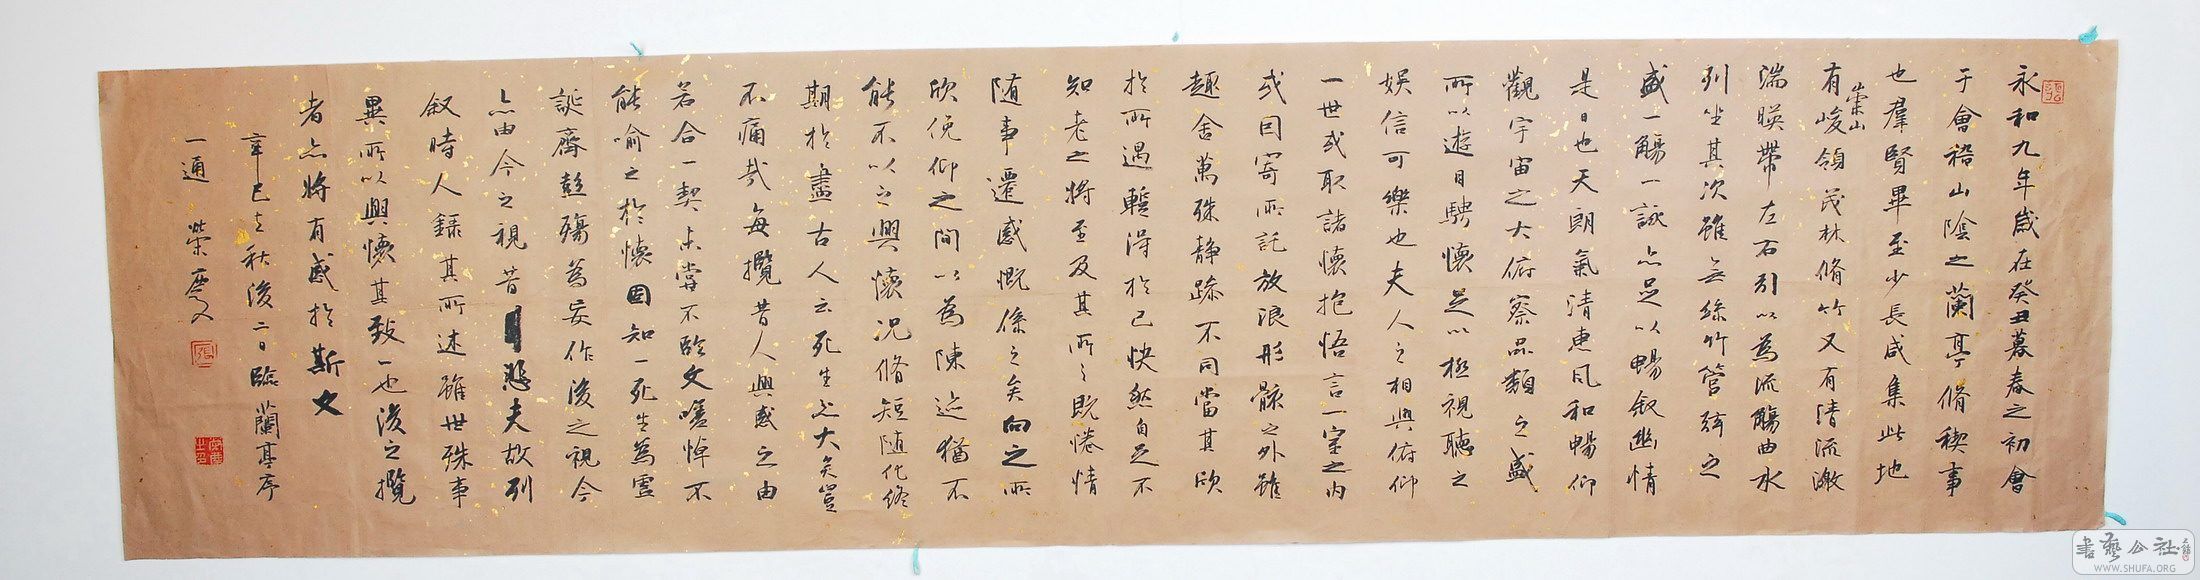 永和九年歲在癸丑暮春之初會
于會稽山陰之蘭亭脩稧事
也羣賢畢至少長咸集此地
有崇山峻領茂林脩竹又有清流激
湍暎帶左右引以為流觴曲水
列坐其次雖無絲竹管弦之
盛一觴一詠亦足以暢叙幽情
是日也天朗氣清惠風和暢仰
觀宇宙之大俯察品類之盛
所以遊目騁懷足以極視聽之
娛信可樂也夫人之相與俯仰
一世或取諸懷抱悟言一室之內
或因寄所託放浪形骸之外雖
趣舍萬殊靜躁不同當其欣
於所遇蹔得於己快然自足不
知老之將至及其所之既惓情
随事遷感慨係之矣向之所
欣俛仰之間以為陳迹猶不
能不以之興懷况脩短随化終
期於盡古人云死生亦大矣豈
不痛哉每攬昔人興感之由
若合一契未甞不臨文嗟悼不
能喻之於懷固知一死生為虛
誕齊彭殤為妄作後之視今
亦由今之視昔悲夫故列
叙時人錄其所述雖世殊事
異所以興懷其致一也後之攬
者亦將有感於斯文
辛巳立秋後二日臨蘭亭序
一通 榮
書藝公社
WWW.SHUFA.ORG